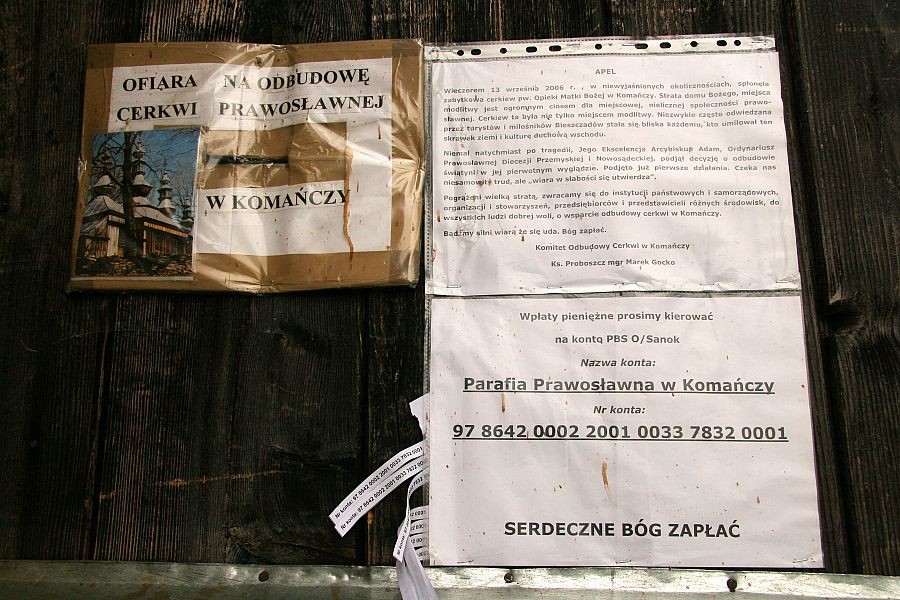 OFIARA NA ODBUDOWĘ
CERKWI PRAWOSŁAWNEJ
W KOMAŃCZY
APEL
Wieczorem 13 września 2006 r. , w niewyjaśnionych okolicznościach, spłonęła
zabytkowa cerkiew pw. Opieki Matki Bożej w Komańczy. Strata domu Bożego, miejsca
modlitwy jest ogromnym ciosem dla miejscowej, nielicznej społeczności prawo-
sławnej. Cerkiew ta była nie tylko miejscem modlitwy. Niezwykle często odwiedzana
przez turystów i miłośników Bieszczadów stała się bliska każdemu, kto umiłował ten
skrawek ziemi i kulturę duchową wschodu.
Niemal natychmiast po tragedii, Jego Ekscelencja Arcybiskup Adam, Ordynariusz
Prawosławnej Diecezji Przemyskiej i Nowosądeckiej, podjął decyzję o odbudowie
świątyni w jej pierwotnym wyglądzie. Podjęto już pierwsze działania. Czeka nas
niesamowity trud, ale „wiara w słabości się utwierdza".
Pogrążeni wielką stratą, zwracamy się do instytucji państwowych i samorządowych,
organizacji i stowarzyszeń, przedsiębiorców i przedstawicieli różnych środowisk, do
wszystkich ludzi dobrej woli, o wsparcie odbudowy cerkwi w Komańczy.
Bądźmy silni wiarą że się uda. Bóg zapłać.
Komitet Odbudowy Cerkwi w Komańczy
Ks. Proboszcz mgr Marek Gocko
Wpłaty pieniężne prosimy kierować
na kontą PBS O/Sanok
Nazwa konta:
Parafia Prawosławna w Komańczy
Nr konta:
97 8642 0002 2001 0033 7832 0001
SERDECZNE BÓG ZAPŁAĆ
Nr konta: 97 8642 0002 2001 0033 7832 0001
Nr konta: 97 8642 0002 2001 0033 7832 0001